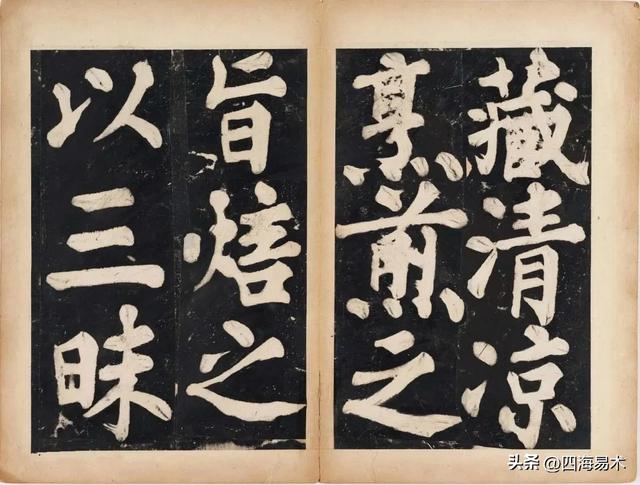 藏清凉
烹煎之
旨焙之
以三昧
头条 @四海易木